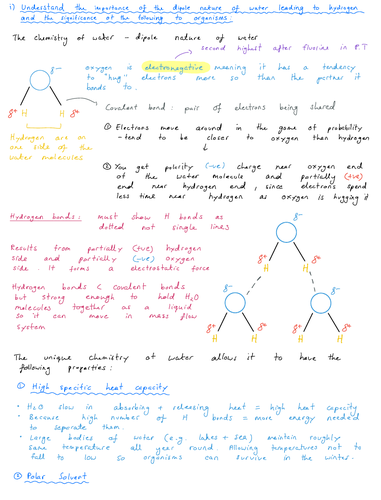 i) Understand the importance of the dipole nature of water leading to hydrogen
and the significance of the following to organisms:
The chemistry of water - dipole nature of water
second highest after fluorine in P.T
δ-
oxygen is electronegative meaning it has a tendency
to "hug" electrons more so than the partner it
bonds to.
Covalent bond: pair of electrons being shared
δ+ H H δ+
Hydrogen are on
one side of the
water molecules
① Electrons move around in the game of probability
- tend to be closer to oxygen than hydrogen
↓
② You get polarity (-ve) charge near oxygen end
of the water molecule and partially (+ve)
end near hydrogen end, since electrons spend
less time near hydrogen as oxygen is hugging it
Hydrogen bonds: must show H bonds as
dotted not single lines
Results from partially (+ve) hydrogen
side and partially (-ve) oxygen
side. It forms a electrostatic force
Hydrogen bonds < covalent bonds
but strong enough to hold H2O
molecules together as a liquid
so it can move in mass flow
system
δ-
δ+ H H δ+
δ- δ-
δ+ H H δ+ δ+ H H δ+
The unique chemistry of water allows it to have the
following properties:
① High specific heat capacity
• H2O slow in absorbing + releasing heat = high heat capacity
• Because high number of H bonds = more energy needed
to separate them.
• Large bodies of water (e.g. lakes + sea) maintain roughly
same temperature all year round. Allowing temperatures not to
fall to low so organisms can survive in the winter.
② Polar Solvent